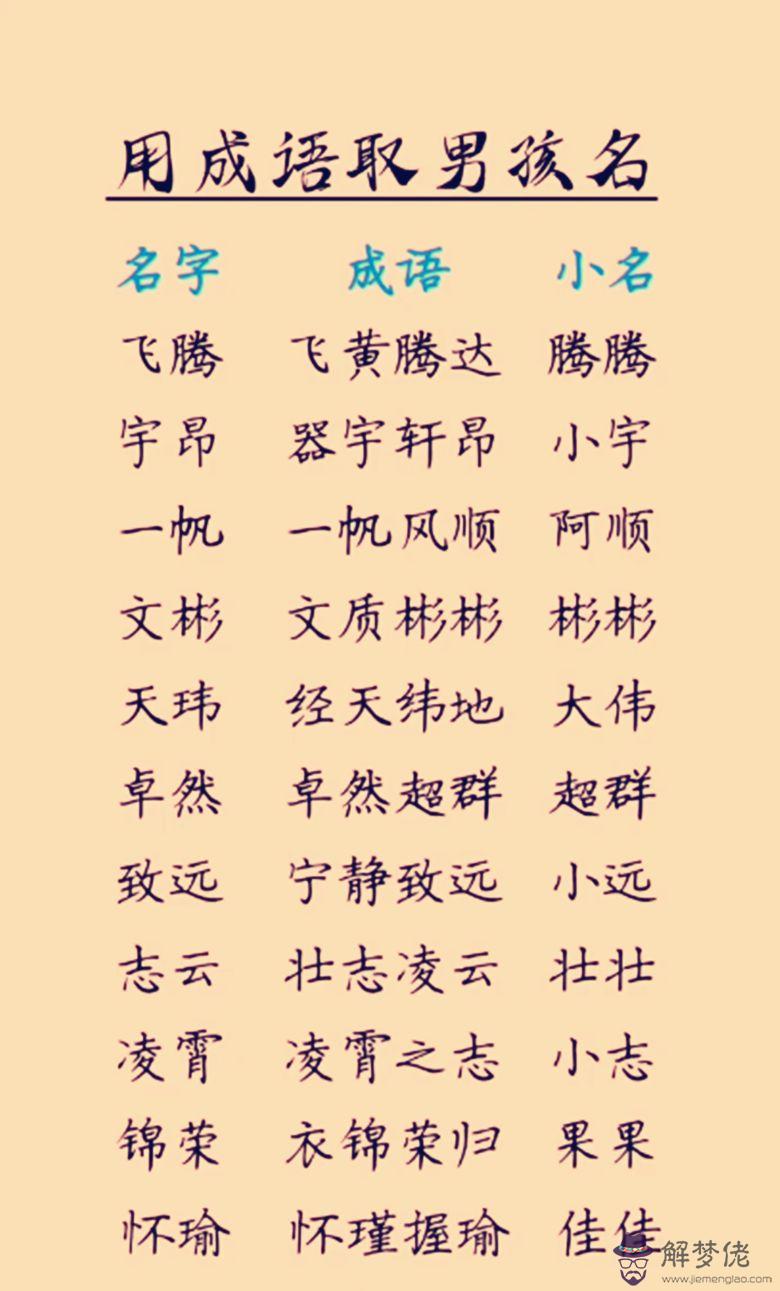 用成语取男孩名
名字 成语 小名
飞腾 飞黄腾达 腾腾
宇昂 器宇轩昂 小宇
一帆 一帆风顺 阿顺
文彬 文质彬彬 彬彬
天玮 经天纬地 大伟
卓然 卓然超群 超群
致远 宁静致远 小远
志云 壮志凌云 壮壮
凌霄 凌霄之志 小志
锦荣 衣锦荣归 果果
怀瑜 怀瑾握瑜 佳佳
解梦佬
www.jiemenglao.com